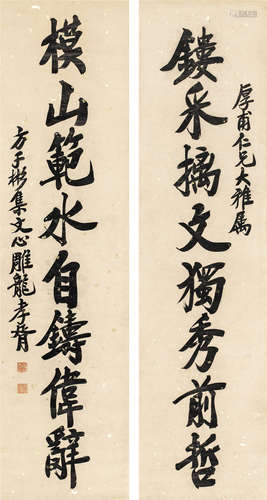 厚甫仁兄大雅属
鏤采摛文獨秀前哲
模山範水自鑄偉辭
方子彬集文心雕龍孝胥